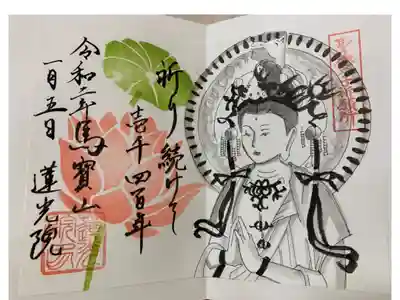 祈り続けて
壱千四百年
馬寳山
蓮光院
令和二年
一月五日